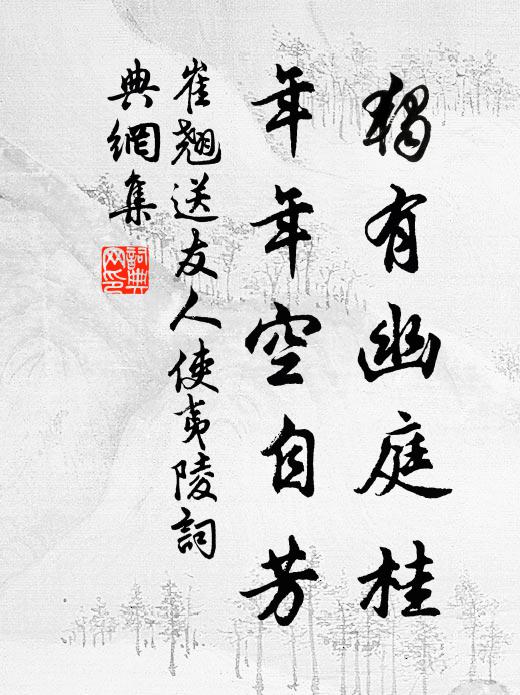 獨有幽庭桂
年年空自芳
崔翹送友人使夷陵詞
典網集
詞典网印